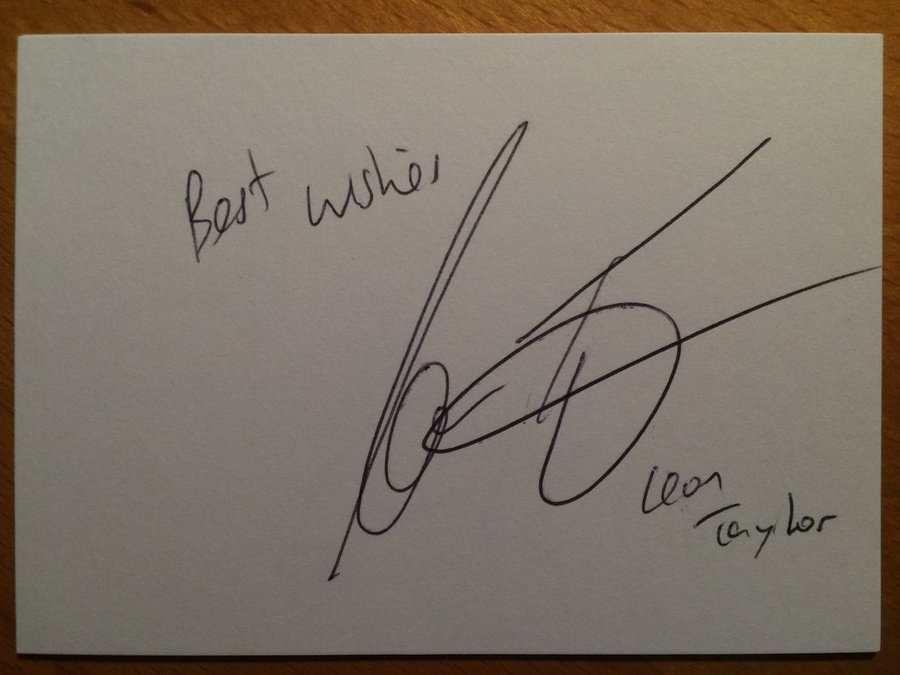 Best wishes
Leon
Taylor